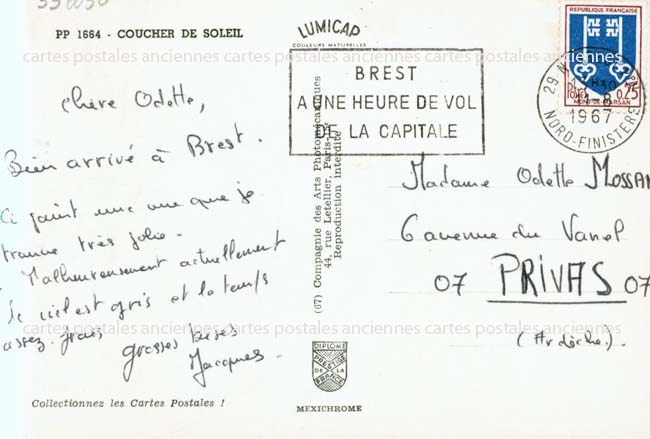 PP 1664 - COUCHER DE SOLEIL
LUMICAP
COULEURS NATURELLES
BREST
A UNE HEURE DE VOL
DE LA CAPITALE
REPUBLIQUE FRANÇAISE
Postes 0,25
MONT-DE-MARSAN
29 N
1967
NORD-FINISTERE
chère Odette,
Bien arrivé à Brest.
Ci joint une vue que je
trouve très jolie.
Malheureusement actuellement
le ciel est gris et le temps
assez frais
Grosses bises
Jacques.
(67) Compagnie des Arts Photomécaniques
44, rue Letellier, Paris
Reproduction interdite
Madame Odette MOSSAN
6 avenue du Vanel
07 PRIVAS 07
(Ardèche).
cartes postales anciennes cartes postales anciennes cartes postales anciennes
cartes postales anciennes cartes postales anciennes cartes postales anciennes
DIPLOME
PRESTIGE
DE LA
FRANCE
Collectionnez les Cartes Postales !
MEXICHROME